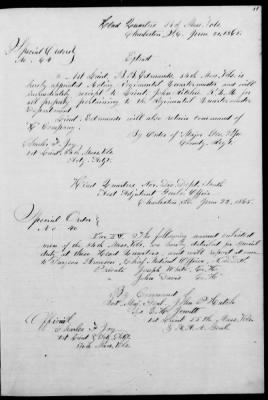 Head Quarters 54th Mass. Vols.
Charleston S.C. June 21, 1865.
Special Orders
No. 46
Extract
1st Lieut. B. B. Edmunds, 54th Mass. Vols. is
hereby appointed Acting Regimental Quartermaster and will
immediately receipt to Lieut. John Ritchie R.Q.M. for
all property pertaining to the Regimental Quartermaster
Department.
Lieut. Edmunds will also retain command of
"K" Company.
By Order of Major
Comdg. Regt.
Charles F. Joy
1st Lieut. 54th Mass. Vols.
Actg. Adjt.
Head Quarters Nor. Dis. Dept. South
Asst. Adjutant Genl's Office
Charleston S.C. June 22, 1865.
Special Orders
No. 40
The following named enlisted
men of the 54th Mass. Vols. are hereby detailed for special
duty at these Head Quarters, and will report at once
to Surgeon Chief Medical Officer,
Private Joseph White Co. H.
" John Davis Co. H.
By Command
Bvt. Maj. Genl. John P. Hatch
Geo. H. Jewett
1st Lieut. 55th Mass. Vols.
Official
Charles F. Joy
1st Lieut. & Actg. Adjt.
54th Mass. Vols.